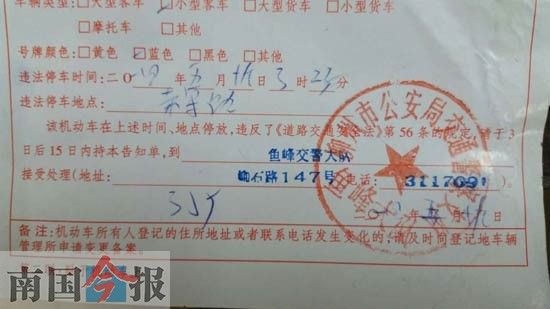 车辆类型：□大型客车 ☑小型客车 □大型货车 □小型货车
□摩托车 □其他
号牌颜色：□黄色 ☑蓝色 □黑色 □其他
违法停车时间：二〇 年 月 日 时 23分
违法停车地点：
该机动车在上述时间、地点停放，违反了《道路交通安全法》第56条的规定，请于3
日后15日内持本告知单，到 鱼峰交警大队
接受处理（地址： 柳石路147号 电话： 3117091 ）。
年 月 日
柳州市公安局交通警察
备注：机动车所有人登记的住所地址或者联系电话发生变化的，请及时向登记地车辆
管理所申请变更备案。
南国今报